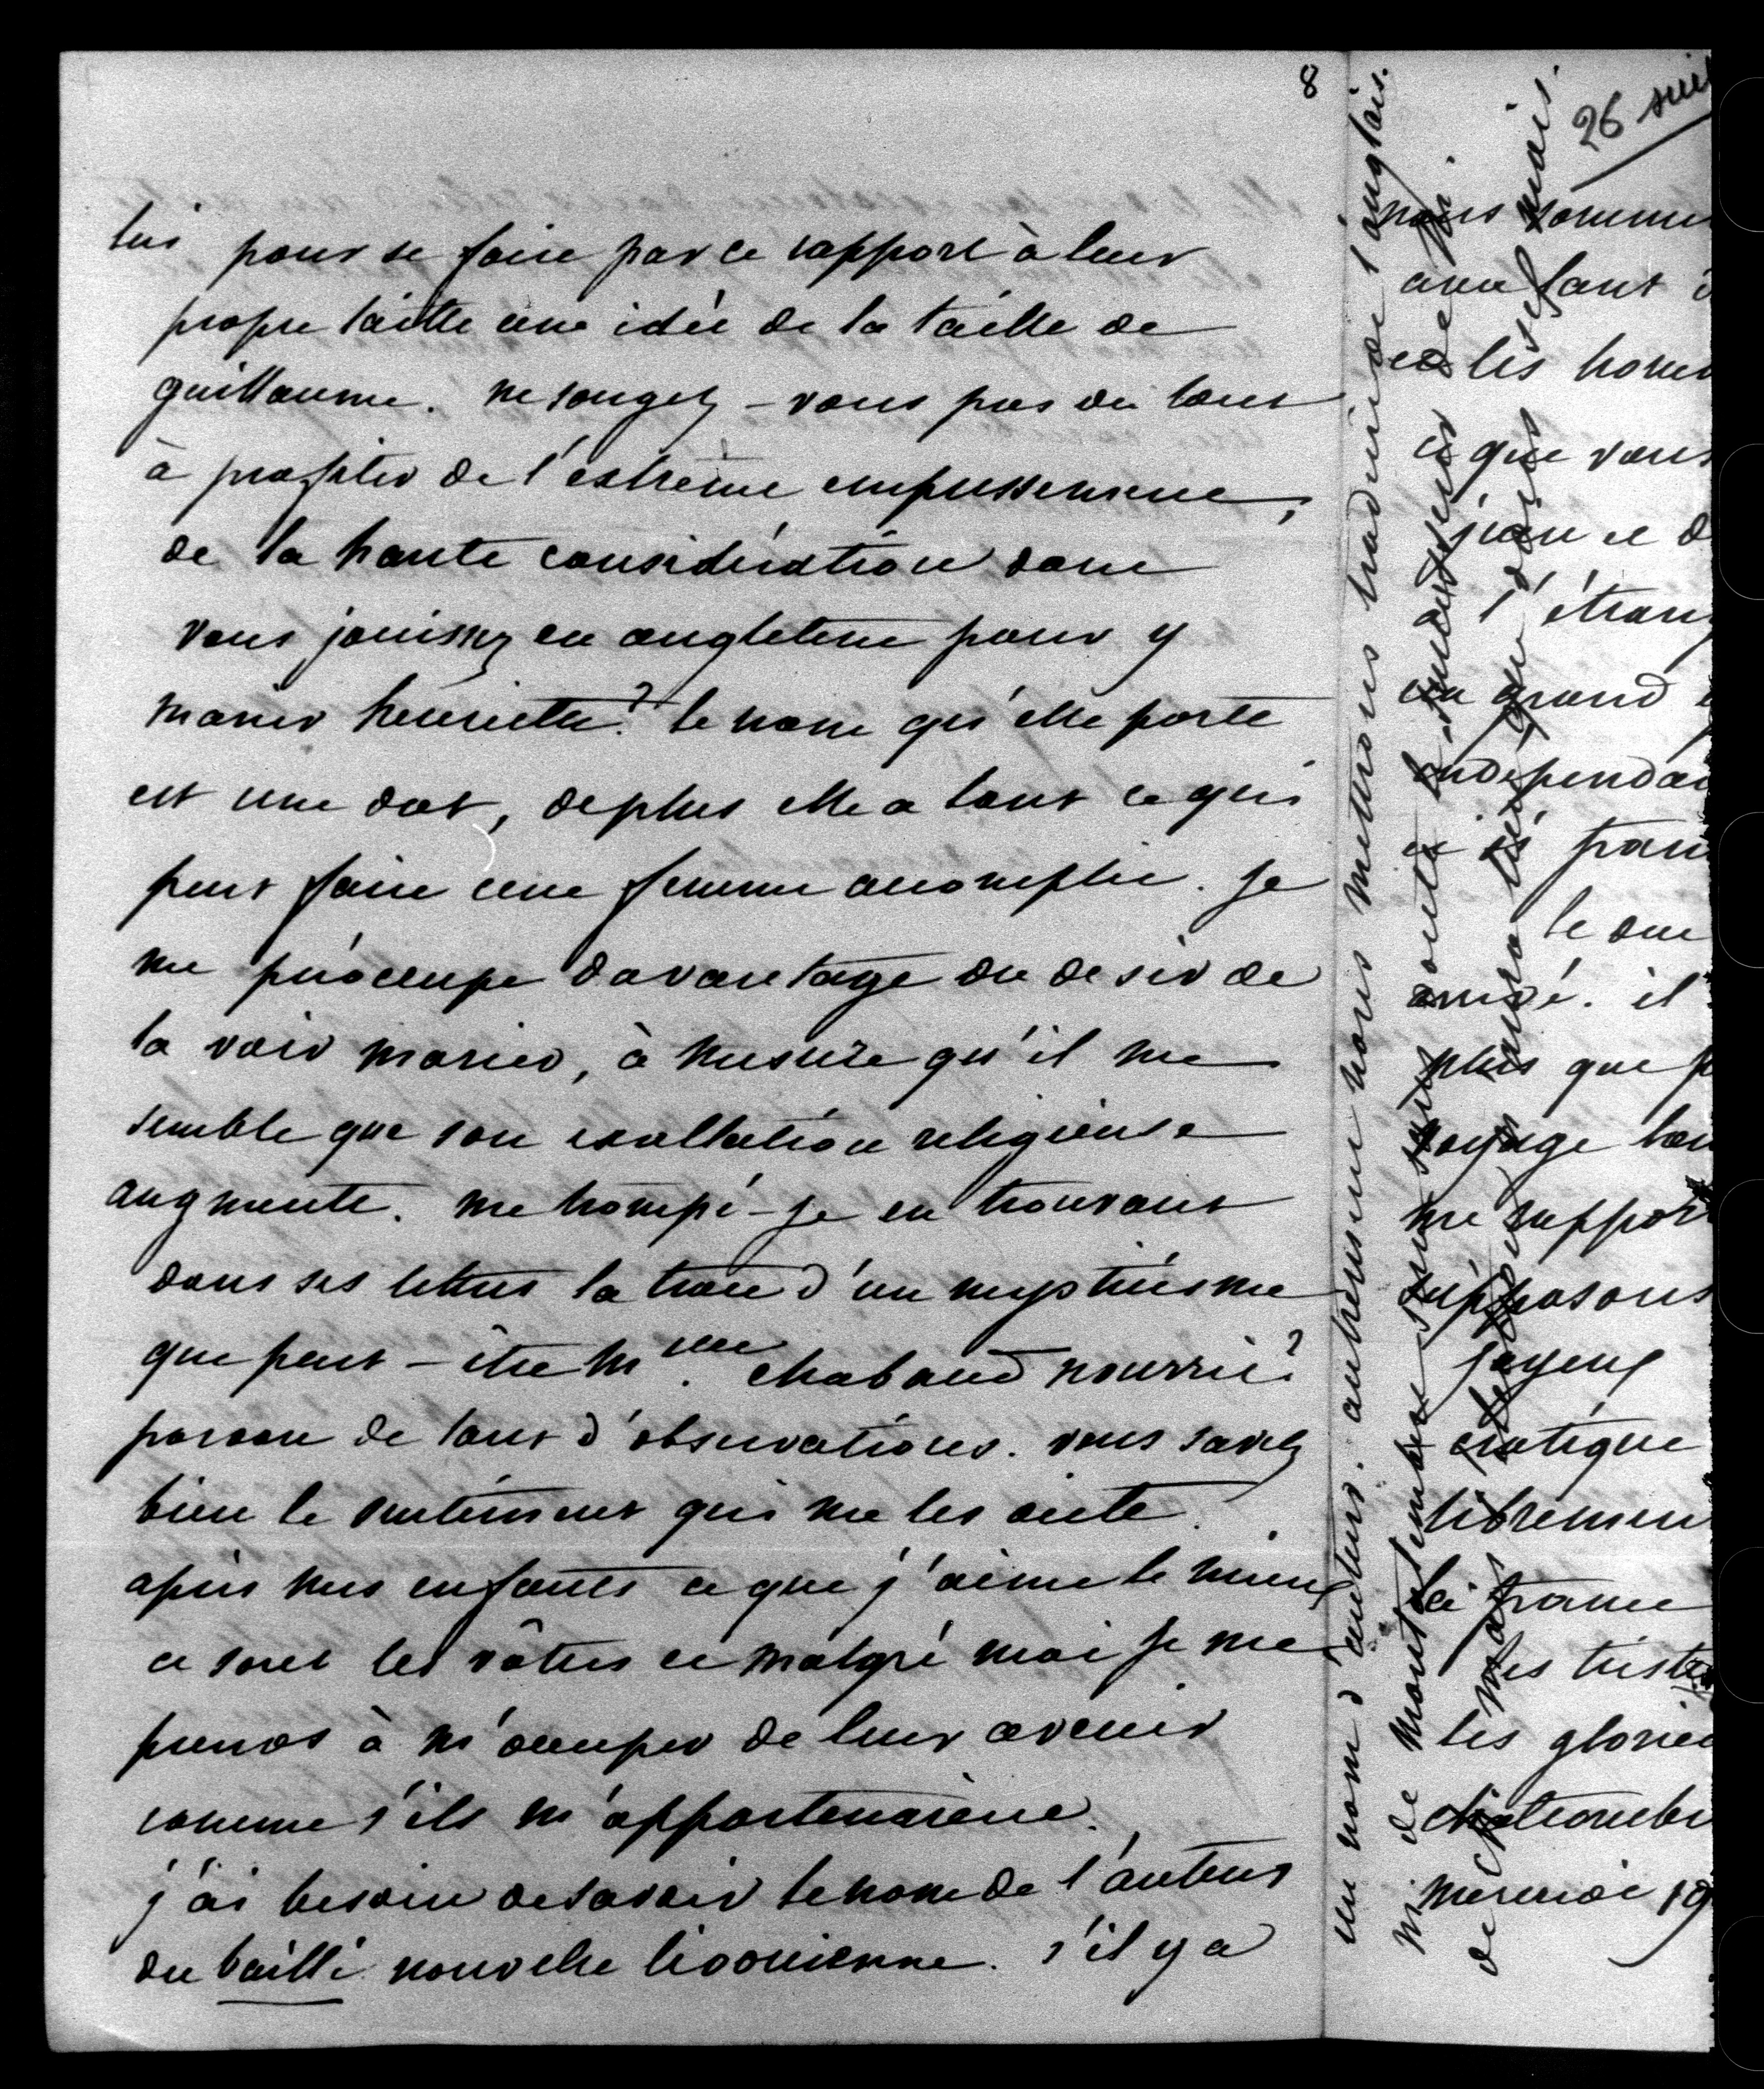 8
lui pour se faire par ce rapport à leur
propre taille une idée de la taille de
guillaume. ne songez-vous pas du tout
à profiter de l'extrême empressement,
de la haute considération dont
vous jouissez en angleterre pour y
marier henriette? le nom qu'elle porte
est une dot, de plus elle a tout ce qui
peut faire une femme accomplie. je
me préoccupe davantage du desir de
la voir marier, à mesure qu'il me
semble que son exaltation religieuse
augmente. me trompé-je en trouvant
dans ses lettres la trace d'un mysticisme
que peut-être Mme chabaud nourrit?
pardon de tant d'observations. vous savez
bien le sentiment qui me les dicte.
après mes enfants ce que j'aime le mieux
ce sont les vôtres et malgré moi je me
prends à m'occuper de leur avenir
comme s'ils m'appartenaient.
j'ai besoin de savoir le nom de l'auteur
du bailli nouvelle livonienne. s'il y a
un nom d'auteur. autrement nous mettrons traduit de l'anglais.
26 suit
nous somme
avec tant
et les hom
ce que vous
l'étran
un grand
independan
et si fran
le duc
arrivé. il
plus que
voyage
me suppor
supposons
joyeux
critique
librement
la france
les triste
les glori
mercredi 19